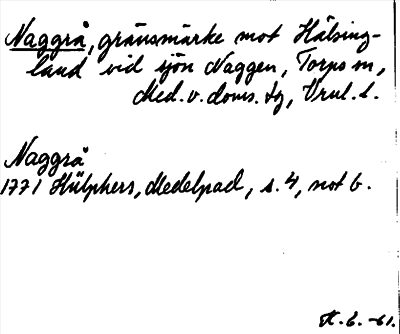 Naggrå, gränsmärke mot Hälsing-
land vid sjön Naggen, Torps sn,
Med. v. doms. tg, Vrul. l.
Naggrå
1771 Hülphers, Medelpad, s. 4, not b.
K. E. -61.